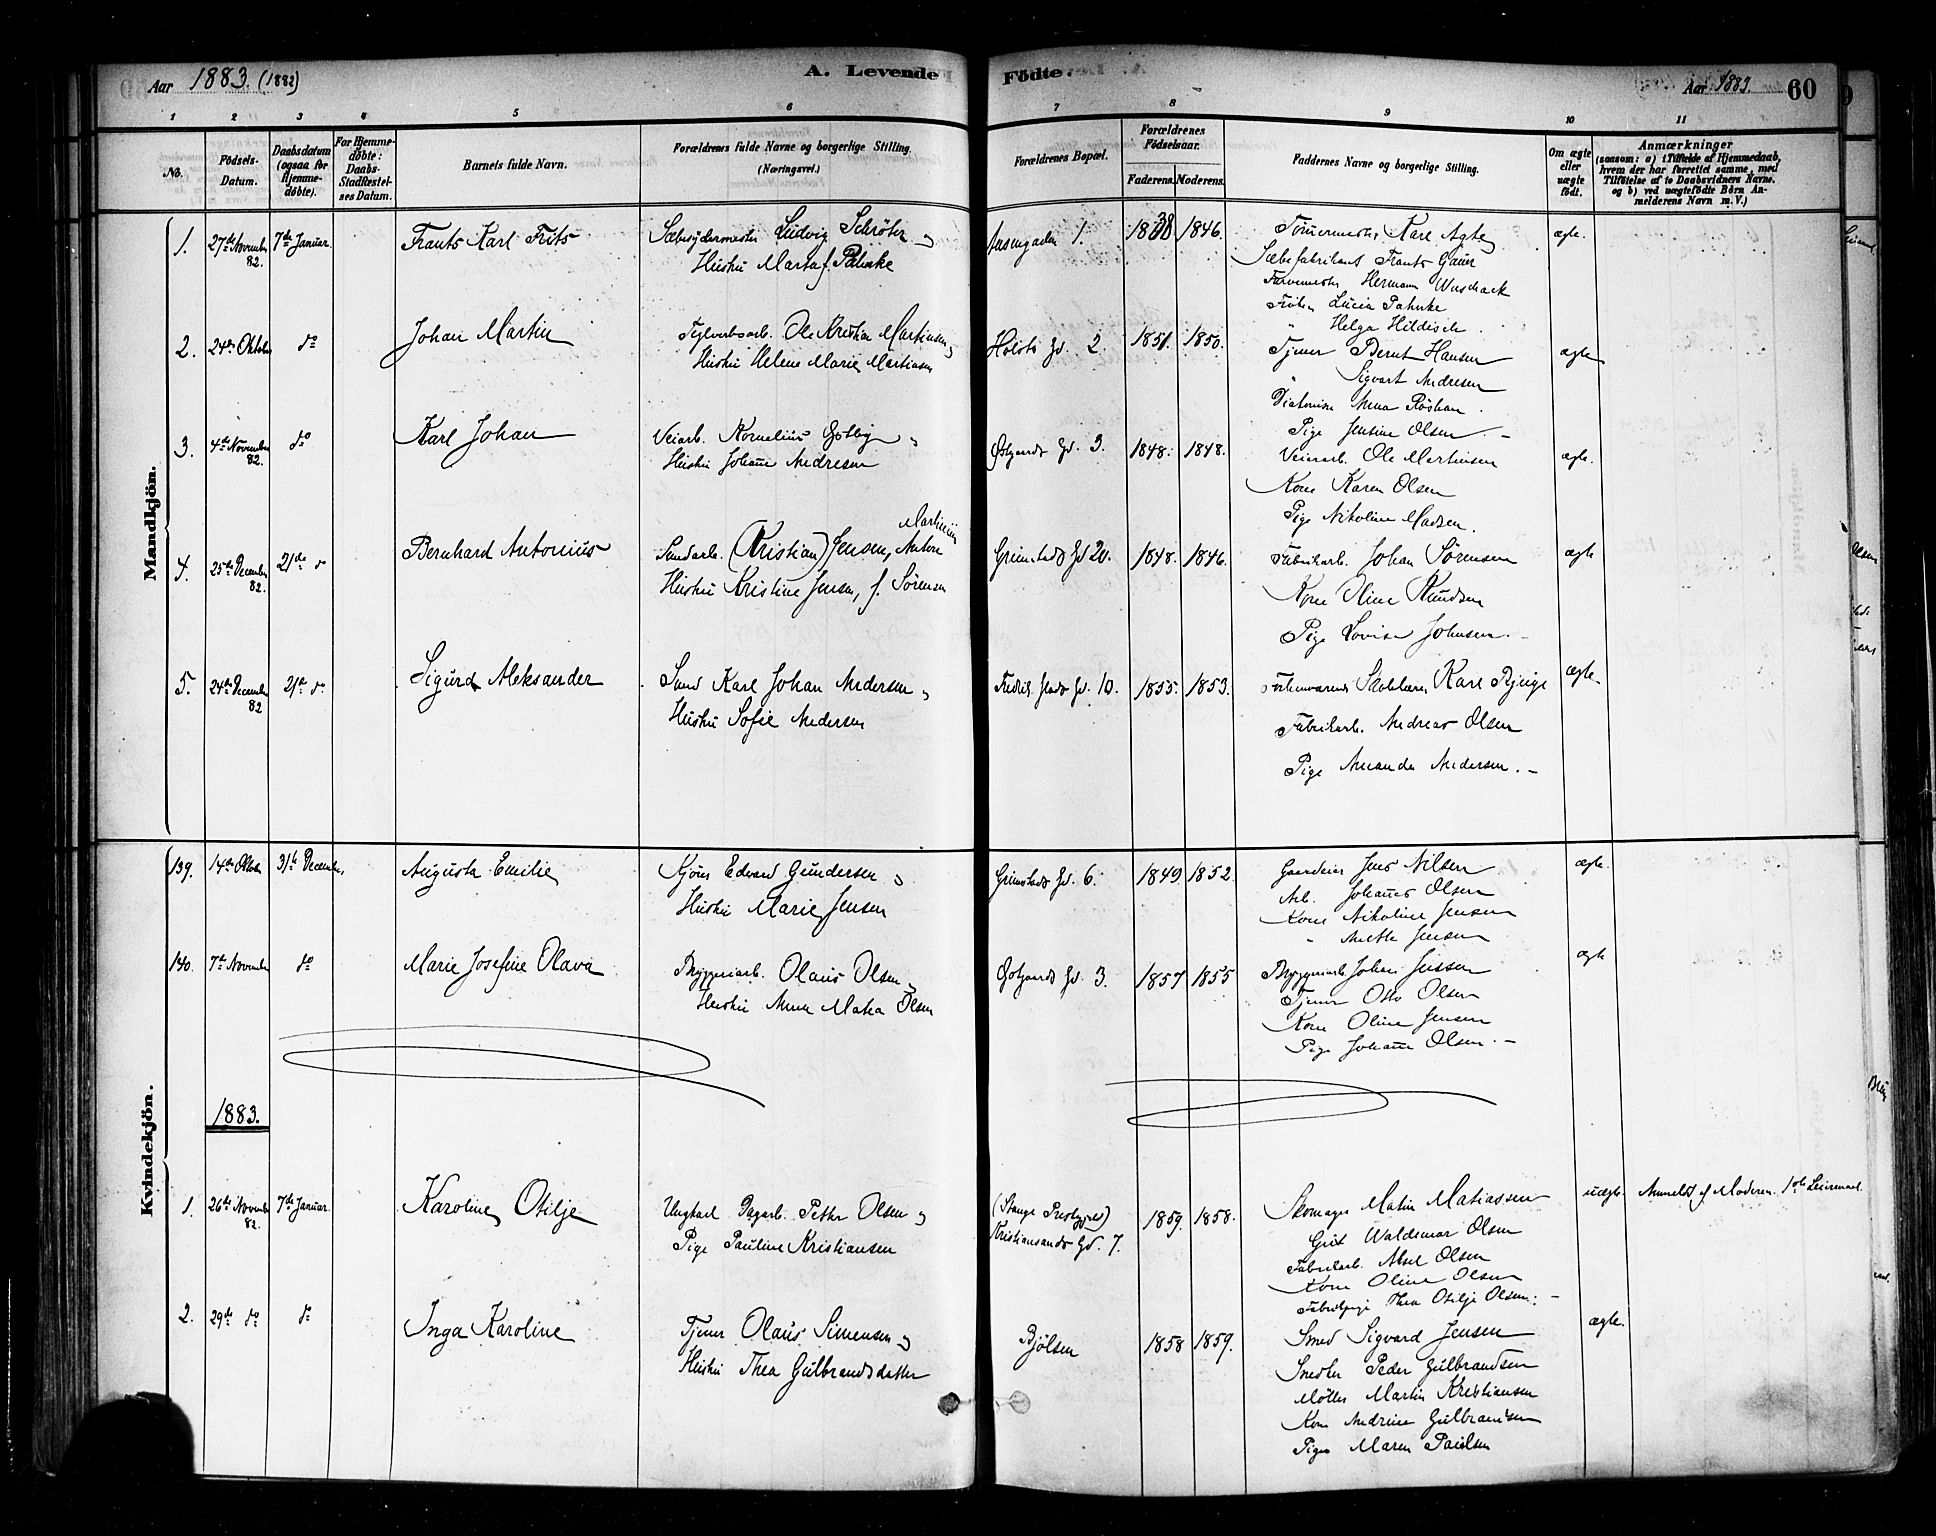 Aar 1883. (1882)
A. Levende Födte.
Aar 1883.
60
1 2 3 4 5 6 7 8 9 10 11
No.
Födsels-Datum.
Daabsdatum (ogsaa for Hjemmedöbte).
For Hjemmedöbte: Daabs-Stadfæstelses Datum.
Barnets fulde Navn.
Forældrenes fulde Navne og borgerlige Stilling.
(Næringsvei.)
Forældrenes Bopæl.
Forældrenes Födselsaar.
Faderens. Moderens.
Faddernes Navne og borgerlige Stilling.
Om ægte eller uægte födt.
Anmærkninger
(saasom: a) i Tilfælde af Hjemmedaab,
hvem der har forrettet samme, med
Tilföielse af to Daabsvidners Navne,
og b) ved uægtefödte Börn An-
melderens Navn m. V.)
Mandkjön.
1. 27de November 82. 7de Januar. Frants Karl Frits
Sæbesydermester Ludvig Schröter
Hustru Marta f. Pahnke
1. 1838 1846.
Karl Agte
Sæbefabrikant Frants Gaur
Farvermester Hermann Wuschack
Frøken Lucia Pahnke
" Helga Hildisch
ægte.
2. 24de Oktober do Johan Martin
Teglverksarb. Ole Kristian Martinsen
Hustru Helene Marie Martinsen
Holsts Gd. 2. 1851. 1850.
Tjener Bernt Hansen
" Sigvart Andresen
Anna
Pige Jensine Olsen
ægte
3. 4de November 82. do Karl Johan
Veiarb. Kornelius Østby
Hustru Johanne Andresen
Østgaards Gd. 3. 1848. 1848.
Veiarb. Ole Martinsen
Kone Karen Olsen
Pige Nikoline Madsen.
ægte.
4. 25de December 82. 21de do Bernhard Antonius
(Kristian) Jensen, Anton Martinius
Hustru Kristine Jensen, f. Sörensen
Grimstads Gd 20. 1848. 1846.
Fabrikarb. Johan Sørensen
Kone Oline Knudsen
Pige Lovise Johnsen.
ægte
5. 24de December 82 21de do Sigurd Aleksander
Smed Karl Johan Andersen
Hustru Sofie Andersen
Fredrikstads Gd. 10. 1855. 1853.
Karl
Fabrikarb. Andreas Olsen
Pige Amanda Andersen.
ægte
Kvindekjön.
139. 14de Oktober 31te December Augusta Emilie
Edvard Gundersen
Hustru Marie Jensen
Grimstads Gd. 6. 1849. 1852.
Gaardeier Jens Nilsen
Arb. Johannes Olsen
Kone Nikoline Jensen
" Anette Jensen
ægte.
140. 7de November do Marie Josefine Olava
Bryggeriarb. Olaus Olsen
Hustru Anna Matea Olsen
Østgaards Gd. 3. 1857 1855
Bryggeriarb. Johan Jensen
Tjener Otto Olsen
Kone Oline Jensen
Pige Johanne Olsen.
ægte
1883.
1. 26de November 82. 7de Januar. Karoline Otilje
Ungkarl Dagarb. Petter Olsen
Pige Pauline Kristiansen
(Stange Prestgjeld)
Kristiansands Gd. 7. 1859. 1858.
Skomager Matin Matiassen
Gjört Waldemar Olsen
Fabrikarb. Aksel Olsen
Kone Oline Olsen
Fabrikpige Thea Otilje Olsen.
uægte
Anmeldt af Moderen. 1ste Leiermaal.
2. 29de do do Inga Karoline
Tjener Olaus Simensen
Hustru Thea Gulbrandsdatter
Bjölsen 1858 1859.
Smed Sigvard Jensen
Peder Gulbrandsen
Møller Martin Kristiansen
Kone Andrine Gulbrandsen
Pige Maren Paulsen
ægte.